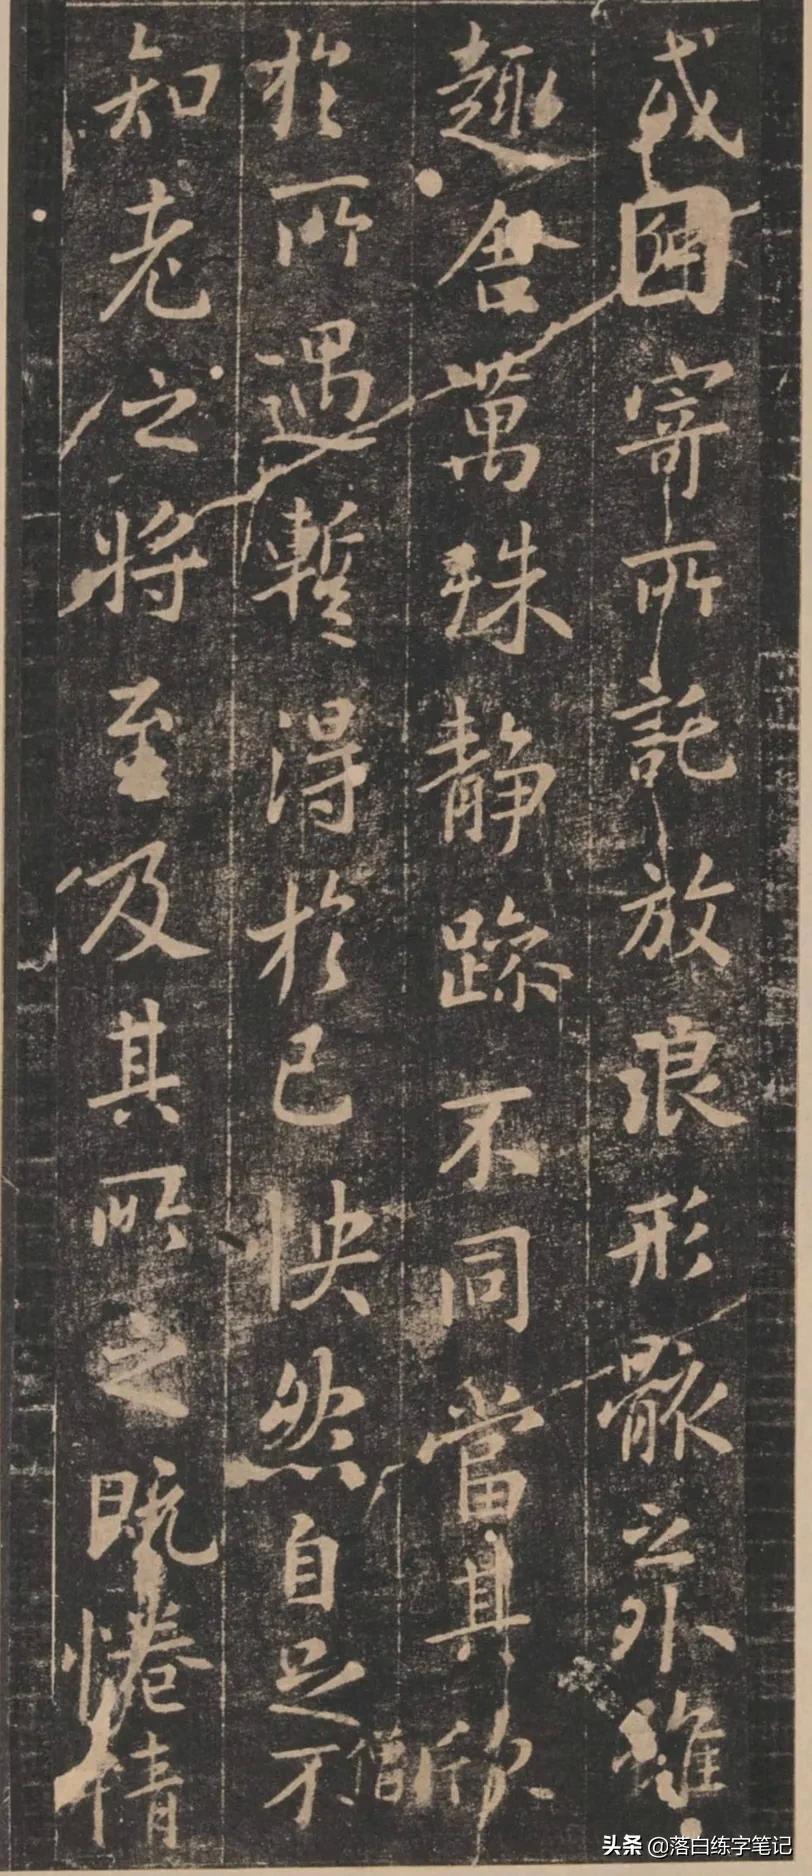 或因寄所託放浪形骸之外雖
趣舎萬殊静踪不同當其欣
於所遇暫得於己怏然自足不
僧
知老之将至及其所之既惓情
头条 @落白练字笔记